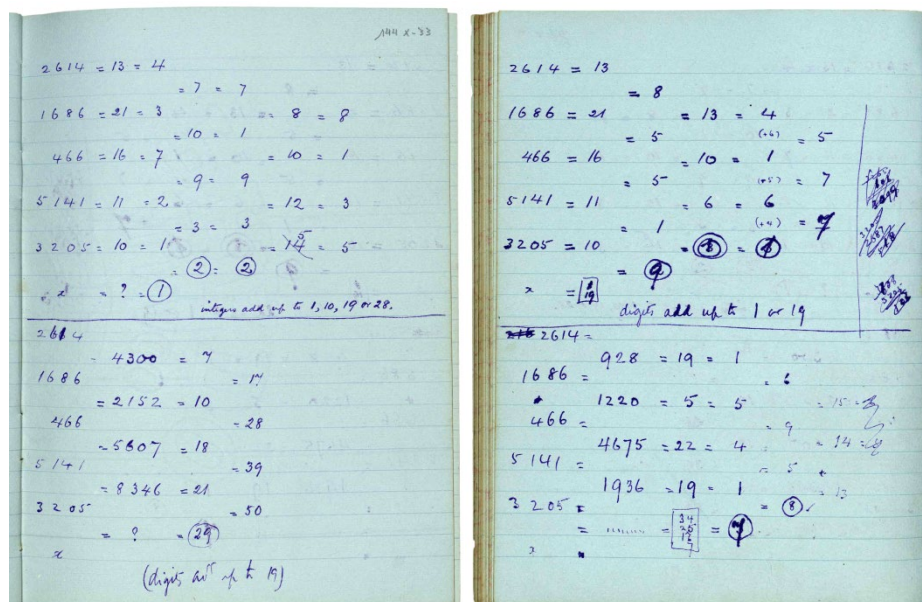 144 x-33
2614 = 13 = 4
= 7 = 7
1686 = 21 = 3 = 8 = 8
= 10 = 1
466 = 16 = 7 = 10 = 1
= 9 = 9
5141 = 11 = 2 = 12 = 3
= 3 = 3
3205 = 10 = 1 = 14 5 = 5
= 2 = 2
x = ? = 1
integers add up to 1, 10, 19 or 28.
2614
= 4300 = 7
1686 = 17
= 2152 = 10
466 = 28
= 5607 = 18
5141 = 39
= 8346 = 21
3205 = 50
= ? = 29
x
(digits add up to 19)
2614 = 13
= 8
1686 = 21 = 13 = 4
= 5 (+6) = 5
466 = 16 = 10 = 1
= 5 (+5) = 7
5141 = 11 = 6 = 6
= 1 (+4) = 7
3205 = 10 = 8 = 8
= 9
x = 1 19
digits add up to 1 or 19
2614 =
928 = 19 = 1
1686 = = 6
1220 = 5 = 5 = 15
466 = = 9
4675 = 22 = 4 = 14
5141 = = 5
1936 = 19 = 1 = 13
3205 = = 8
= ....... = 34 25 16 7 = 7
x =